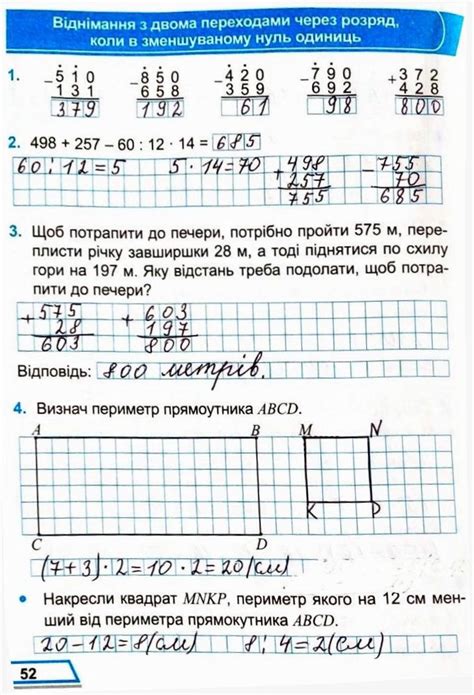 Віднімання з двома переходами через розряд,
коли в зменшуваному нуль одиниць
1. -510 -850 -420 -790 +372
131 658 359 692 428
379 192 61 98 800
2. 498 + 257 – 60 : 12 · 14 = 685
60 : 12 = 5 5 · 14 = 70 +498 -755
257 70
755 685
3. Щоб потрапити до печери, потрібно пройти 575 м, пере-
плисти річку завширшки 28 м, а тоді піднятися по схилу
гори на 197 м. Яку відстань треба подолати, щоб потра-
пити до печери?
+575 +603
28 197
603 800
Відповідь: 800 метрів.
4. Визнач периметр прямоутника ABCD.
A B M N
K P
C D
(7+3) · 2 = 10 · 2 = 20 (см)
• Накресли квадрат MNKP, периметр якого на 12 см мен-
ший від периметра прямокутника ABCD.
20 – 12 = 8 (см) 8 : 4 = 2 (см)
52